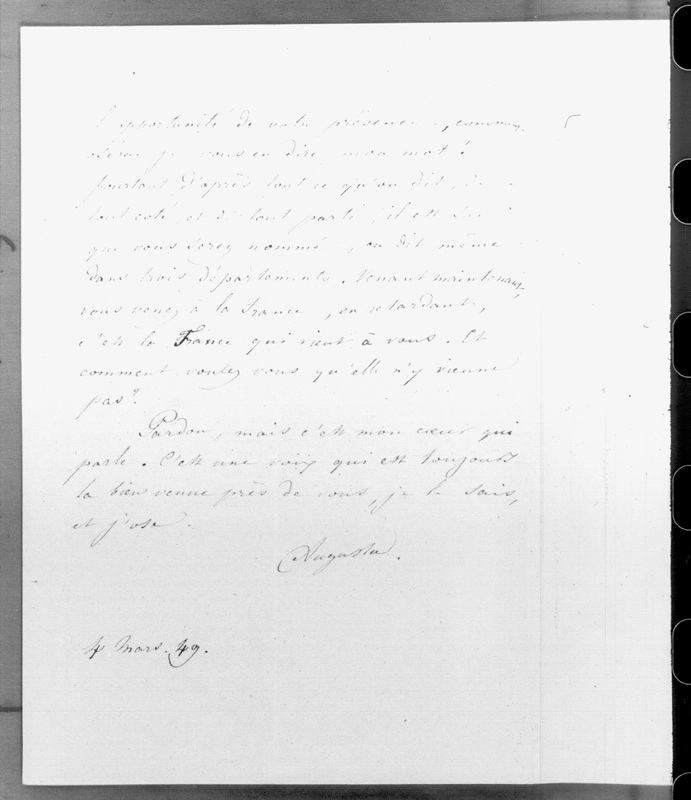 l'opportunité de votre présence
oserai je vous en dire mon mot?
pourtant d'après tout ce qu'on dit, de
tout coté, et de tout parti, il est sûr
que vous serez nommé, on dit même
dans trois départements. Venant maintenant,
vous venez à la France, en retardant,
c'est la France qui vient à vous. Et
comment voulez vous qu'elle n'y vienne
pas?
Pardon, mais c'est mon cœur qui
parle. C'est une voix qui est toujours
la bien venue près de vous, je le sais,
et j'ose.
Auguste.
4 Mars. 49.